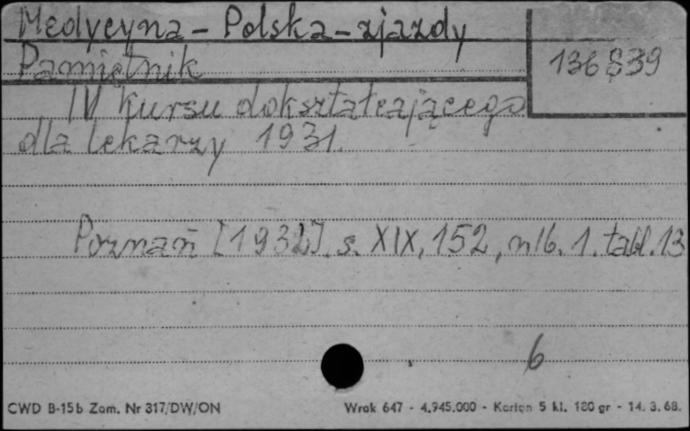 Medycyna - Polska - zjazdy
136 839
Pamiętnik
IV kursu dokształcającego
dla lekarzy 1931.
Poznań [1932]. s. XIX, 152, nlb. 1. tabl. 13
6
CWD B-15b Zam. Nr 317/DW/ON
Wrak 647 - 4.945.000 - Karton 5 kl. 180 gr - 14. 3. 68.